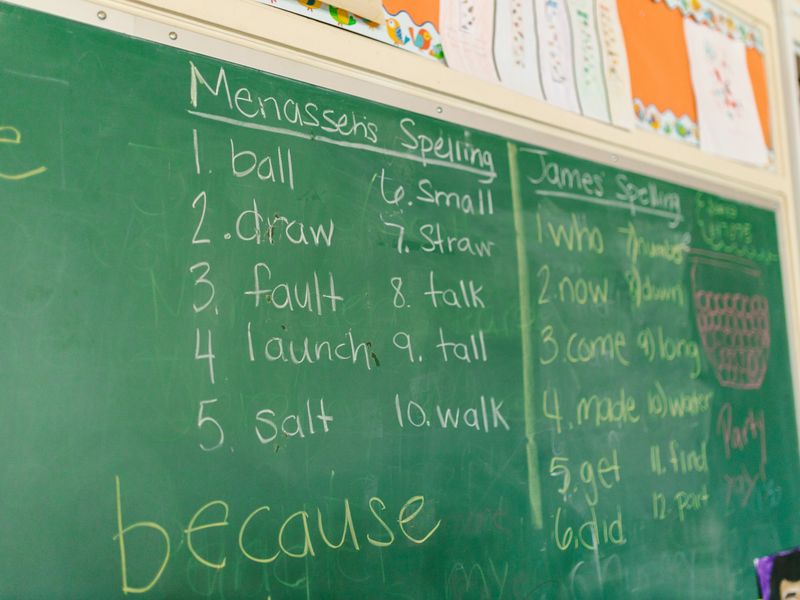 Menasseh's Spelling
1. ball
2. draw
3. fault
4 launch
5. salt
6. Small
7. Straw
8. talk
9. tall
10. walk
because
James' Spelling
1 who
2. now
3. come
4. made
5. get
6. did
7) number
8) down
9) long
10) water
11. find
12. part
Party